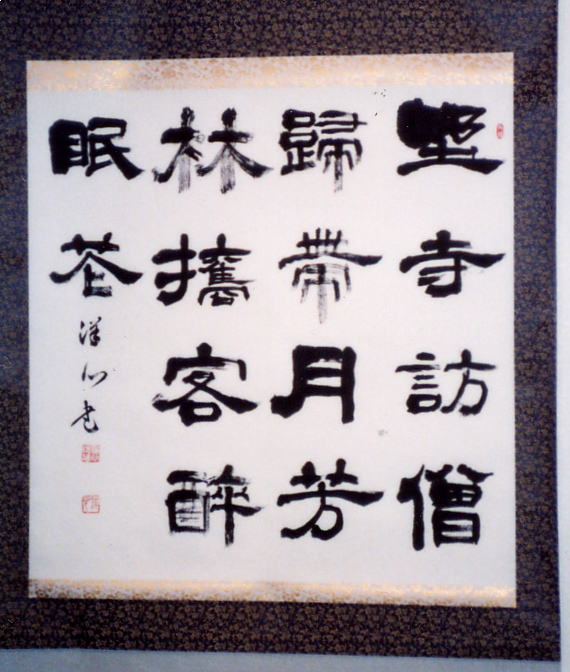 野寺訪僧
歸帶月芳
林攜客醉
眠花 書